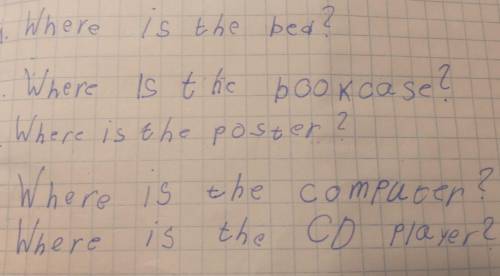 . Where is the bed?
. Where Is the bookcase?
. Where is the poster?
Where is the computer?
Where is the CD player?